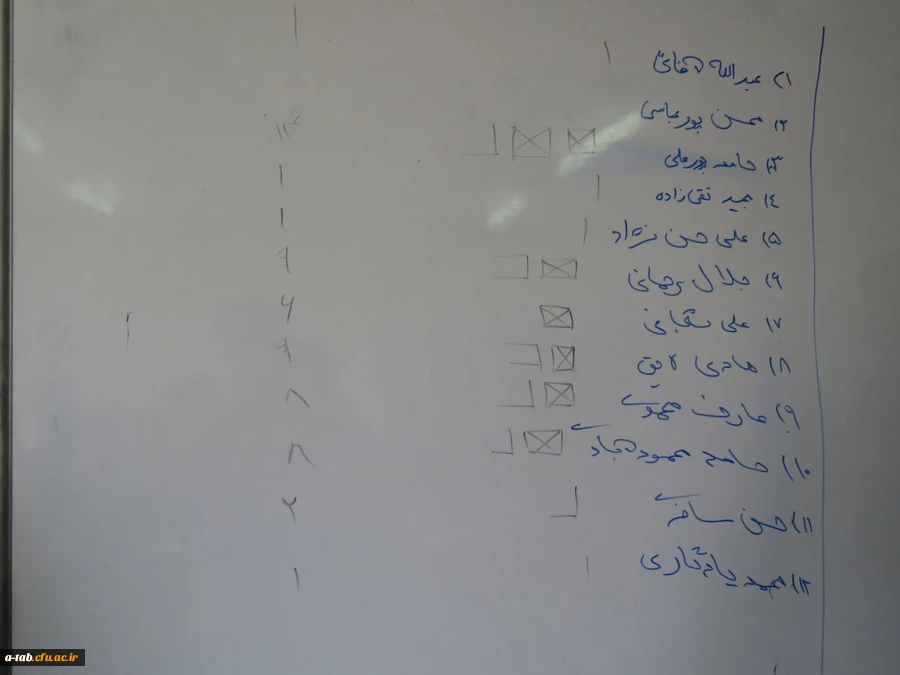 ۱) عبدالله آقائی ۱
۲) محسن پورعباسی ۱۳
۳) حامد پورعلی ۱
۴) مجید تقی‌زاده ۱
۵) علی حسن نژاد
۶) جلال رحمانی
۷) علی
۸) هادی لایق
۹) عارف محمودی ۸
۱۰) حامد محمودآبادی ۸
۱۱) حسن ۲
۱۲) محمد ۱
a-tab.cfu.ac.ir